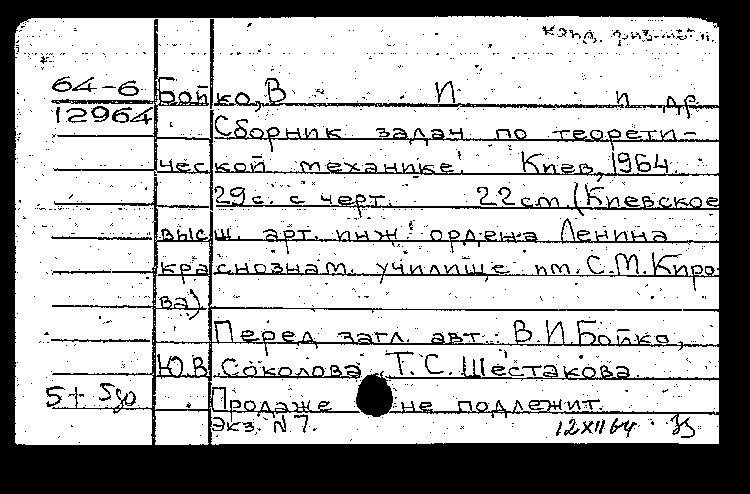 канд. физ-мат. н.
64-6 Бойко, В И и др
12964 Сборник задач по теорети-
ческой механике. Киев, 1964.
29с. с черт. 22см. (Киевское
высш. арт. инж. ордена Ленина
краснознам. училище им. С.М.Киро-
ва)
Перед загл. авт.: В.И.Бойко,
Ю.В. Соколова, Т.С. Шестакова.
5+ Продаже не подлежит.
Экз. N 7. 12XII64